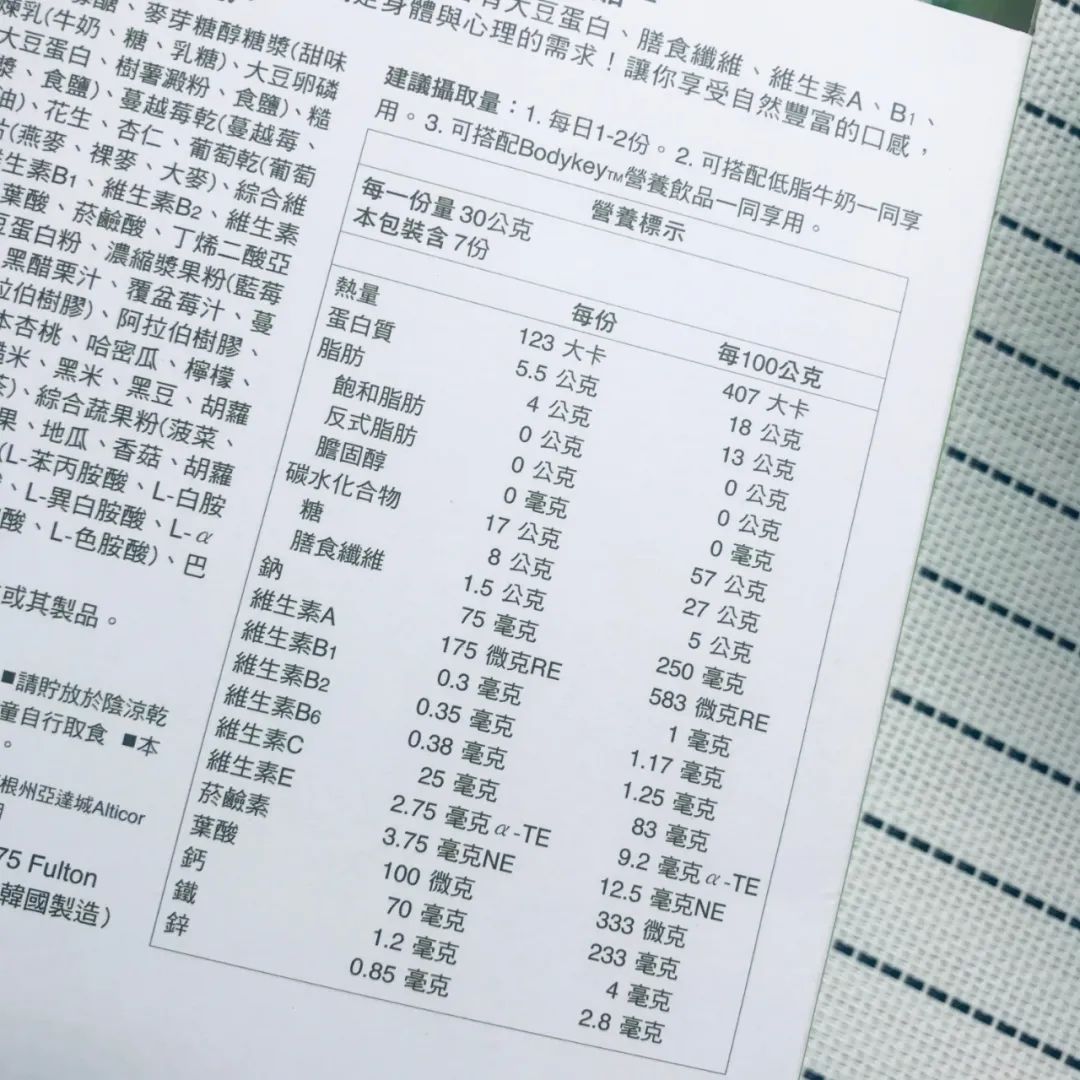 麥芽糖醇糖漿(甜味
煉乳(牛奶、糖、乳糖)、大豆卵磷
大豆蛋白、樹薯澱粉、食鹽)、糙
漿、食鹽)、蔓越莓乾(蔓越莓、
油)、花生、杏仁、葡萄乾(葡萄
片(燕麥、裸麥、大麥)、綜合維
生素B1、維生素B2、維生素
葉酸、菸鹼酸、丁烯二酸亞
豆蛋白粉、濃縮漿果粉(藍莓
黑醋栗汁、覆盆莓汁、蔓
拉伯樹膠)、阿拉伯樹膠、
本杏桃、哈密瓜、檸檬、
糙米、黑米、黑豆、胡蘿
茶)、綜合蔬果粉(菠菜、
果、地瓜、香菇、胡蘿
(L-苯丙胺酸、L-白胺
、L-異白胺酸、L-α
酸、L-色胺酸)、巴
或其製品。
■請貯放於陰涼乾
童自行取食 ■本
。
根州亞達城Alticor
75 Fulton
韓國製造)
有大豆蛋白、膳食纖維、維生素A、B1、
足身體與心理的需求！讓你享受自然豐富的口感，
建議攝取量：1. 每日1-2份。2. 可搭配低脂牛奶一同享
用。3. 可搭配Bodykey™營養飲品一同享用。
營養標示
每一份量 30公克
本包裝含 7份
每份 每100公克
熱量 123 大卡 407 大卡
蛋白質 5.5 公克 18 公克
脂肪 4 公克 13 公克
飽和脂肪 0 公克 0 公克
反式脂肪 0 公克 0 公克
膽固醇 0 毫克 0 毫克
碳水化合物 17 公克 57 公克
糖 8 公克 27 公克
膳食纖維 1.5 公克 5 公克
鈉 75 毫克 250 毫克
維生素A 175 微克RE 583 微克RE
維生素B1 0.3 毫克 1 毫克
維生素B2 0.35 毫克 1.17 毫克
維生素B6 0.38 毫克 1.25 毫克
維生素C 25 毫克 83 毫克
維生素E 2.75 毫克α-TE 9.2 毫克α-TE
菸鹼素 3.75 毫克NE 12.5 毫克NE
葉酸 100 微克 333 微克
鈣 70 毫克 233 毫克
鐵 1.2 毫克 4 毫克
鋅 0.85 毫克 2.8 毫克